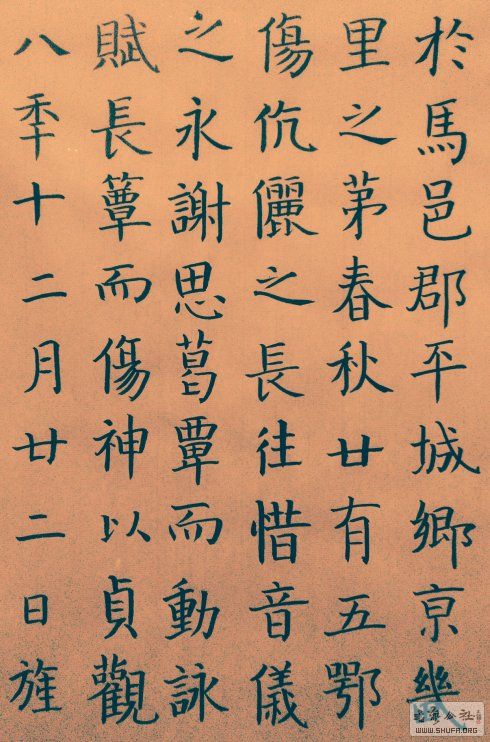 於馬邑郡平城鄉亰幾
里之苐春秋廿有五鄂
傷伉儷之長往惜音儀
之永謝思葛覃而動詠
賦長簟而傷神以貞觀
八秊十二月廿二日旌
WWW.SHUFA.ORG